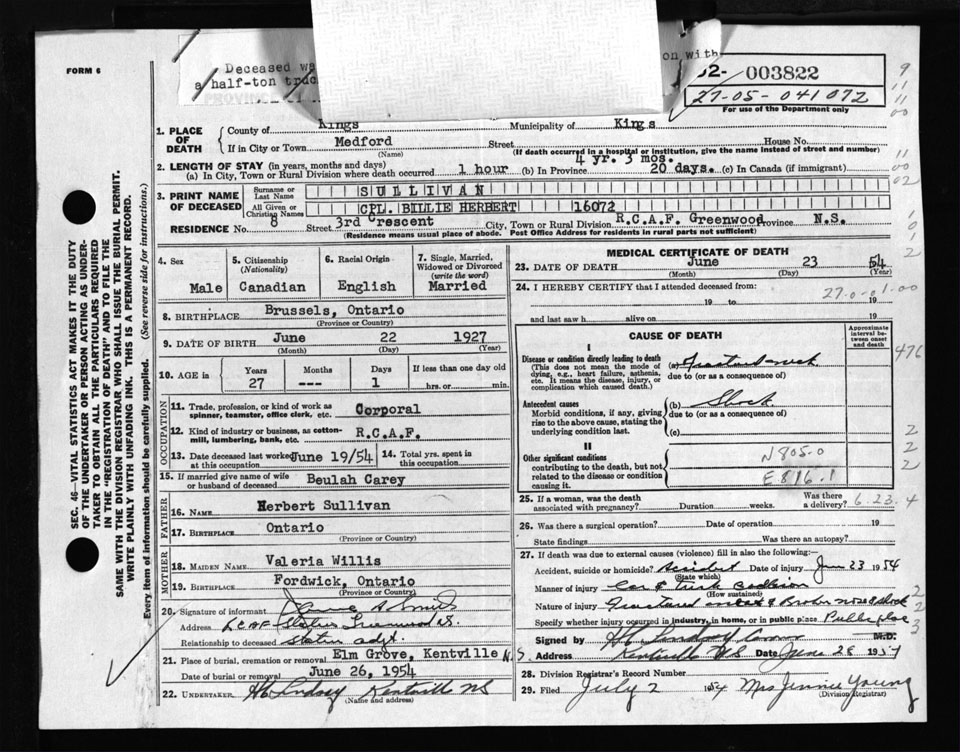 FORM 6
Deceased wa
on with
a half-ton truc
52- 003822
27-05-041072
For use of the Department only
1. PLACE OF DEATH
County of Kings Municipality of Kings
If in City or Town Medford Street House No.
(Name) (If death occurred in a hospital or institution, give the name instead of street and number)
2. LENGTH OF STAY (in years, months and days) 4 yr. 3 mos.
(a) In City, Town or Rural Division where death occurred 1 hour (b) In Province 20 days. (c) In Canada (if immigrant)
3. PRINT NAME OF DECEASED
Surname or Last Name SULLIVAN
All Given or Christian Names CPL. BILLIE HERBERT 16072
RESIDENCE No. 8 Street 3rd Crescent City, Town or Rural Division R.C.A.F. Greenwood Province N.S.
(Residence means usual place of abode. Post Office Address for residents in rural parts not sufficient)
4. Sex Male
5. Citizenship (Nationality) Canadian
6. Racial Origin English
7. Single, Married, Widowed or Divorced (write the word) Married
8. BIRTHPLACE Brussels, Ontario
(Province or Country)
9. DATE OF BIRTH June 22 1927
(Month) (Day) (Year)
10. AGE in Years 27 Months --- Days 1 If less than one day old hrs. or min.
OCCUPATION
11. Trade, profession, or kind of work as spinner, teamster, office clerk, etc. Corporal
12. Kind of industry or business, as cotton-mill, lumbering, bank, etc. R.C.A.F.
13. Date deceased last worked at this occupation June 19/54
14. Total yrs. spent in this occupation
15. If married give name of wife or husband of deceased Beulah Carey
FATHER
16. NAME Herbert Sullivan
17. BIRTHPLACE Ontario
(Province or Country)
MOTHER
18. MAIDEN NAME Valeria Willis
19. BIRTHPLACE Fordwick, Ontario
(Province or Country)
20. Signature of informant
Address RCAF Station Greenwood NS.
Relationship to deceased Station adjt.
21. Place of burial, cremation or removal Elm Grove, Kentville N.S.
Date of burial or removal June 26, 1954
22. UNDERTAKER H C Lindsay Kentville NS
(Name and address)
MEDICAL CERTIFICATE OF DEATH
23. DATE OF DEATH June 23 54
(Month) (Day) (Year)
24. I HEREBY CERTIFY that I attended deceased from:
19 to 19
27-0-01-00
and last saw h alive on 19
CAUSE OF DEATH
Approximate interval between onset and death
I
Disease or condition directly leading to death
(This does not mean the mode of dying, e.g., heart failure, asthenia, etc. It means the disease, injury, or complication which caused death.)
(a) Fractured neck
due to (or as a consequence of)
Antecedent causes
Morbid conditions, if any, giving rise to the above cause, stating the underlying condition last.
(b) Shock
due to (or as a consequence of)
(c)
II
Other significant conditions contributing to the death, but not related to the disease or condition causing it.
N805.0
E816.1
25. If a woman, was the death associated with pregnancy? Duration weeks. Was there a delivery?
6.23.4
26. Was there a surgical operation? Date of operation 19
State findings Was there an autopsy?
27. If death was due to external causes (violence) fill in also the following:
Accident, suicide or homicide? Accident Date of injury June 23 1954
(State which)
Manner of injury Car & truck Collision
(How sustained)
Nature of injury Fractured neck & Broken nose & Shock
Specify whether injury occurred in industry, in home, or in public place Public place
Signed by H C Lindsay M.D.
Address Kentville N S Date June 28 1954
28. Division Registrar's Record Number
29. Filed July 2 1954 Mrs Jennie Young
(Division Registrar)
SEC. 46—VITAL STATISTICS ACT MAKES IT THE DUTY OF THE UNDERTAKER OR PERSON ACTING AS UNDERTAKER TO OBTAIN ALL THE PARTICULARS REQUIRED IN THE "REGISTRATION OF DEATH" AND TO FILE THE SAME WITH THE DIVISION REGISTRAR WHO SHALL ISSUE THE BURIAL PERMIT.
WRITE PLAINLY WITH UNFADING INK. THIS IS A PERMANENT RECORD.
Every item of information should be carefully supplied. (See reverse side for instructions.)
9
11
11
00
11
00
02
0
1
2
476
2
2
2
2
2
3